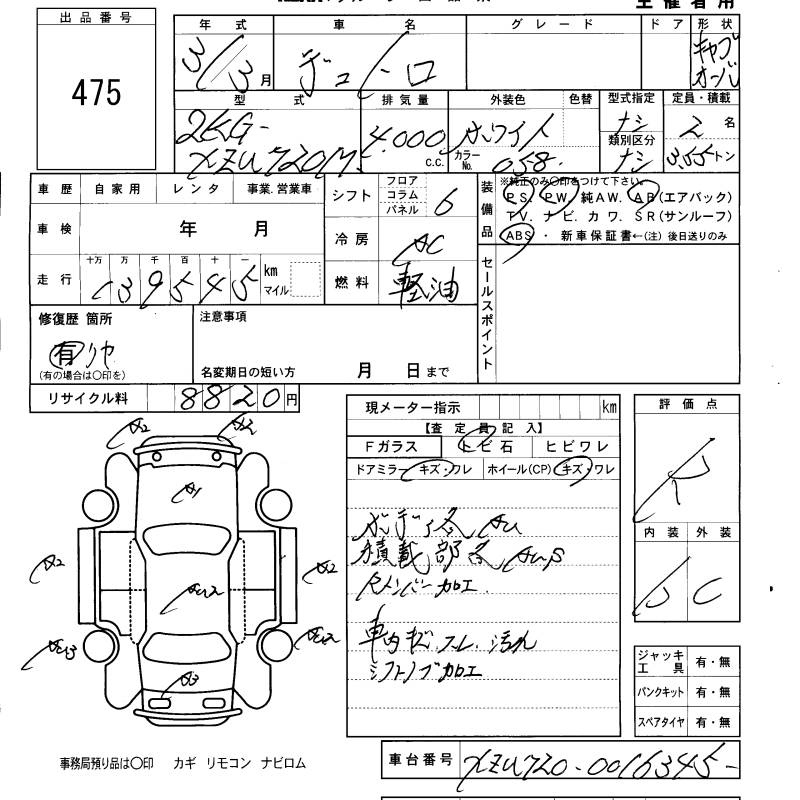 主催者用
出品番号
475
年式 車名 グレード ドア 形状
3/3月 デュトロ キャブオーバ
型式 排気量 外装色 色替 型式指定 定員・積載
2KG-XZU720M 4.000 c.c. ホワイト ナシ 2名
カラーNo. 058 類別区分 ナシ 3.55トン
車歴 自家用 レンタ 事業.営業車
シフト フロア コラム パネル 6
装備品 ※純正のみ〇印をつけて下さい。
PS. PW. 純AW. AB(エアバック)
TV. ナビ. カワ. SR(サンルーフ)
ABS・新車保証書←(注)後日送りのみ
車検 年 月
冷房 AC
走行 十万 万 千 百 十 一
139545 km マイル
燃料 軽油
セールスポイント
修復歴 箇所
有 リヤ
(有の場合は〇印を)
注意事項
名変期日の短い方 月 日まで
リサイクル料 8820円
現メーター指示 km
【査定員記入】
Fガラス トビ石 ヒビワレ
ドアミラー キズ・ワレ ホイール(CP) キズ・ワレ
ボディ各AU
積載部各AUS
Rメンバー加工
車内キズ.スレ.汚れ
シフトノブ加工
評価点
R
内装 外装
D C
A2 A2
A1
A2 A2
A3
ジャッキ工具 有・無
パンクキット 有・無
スペアタイヤ 有・無
事務局預り品は〇印 カギ リモコン ナビロム
車台番号 XZU720-0016345-